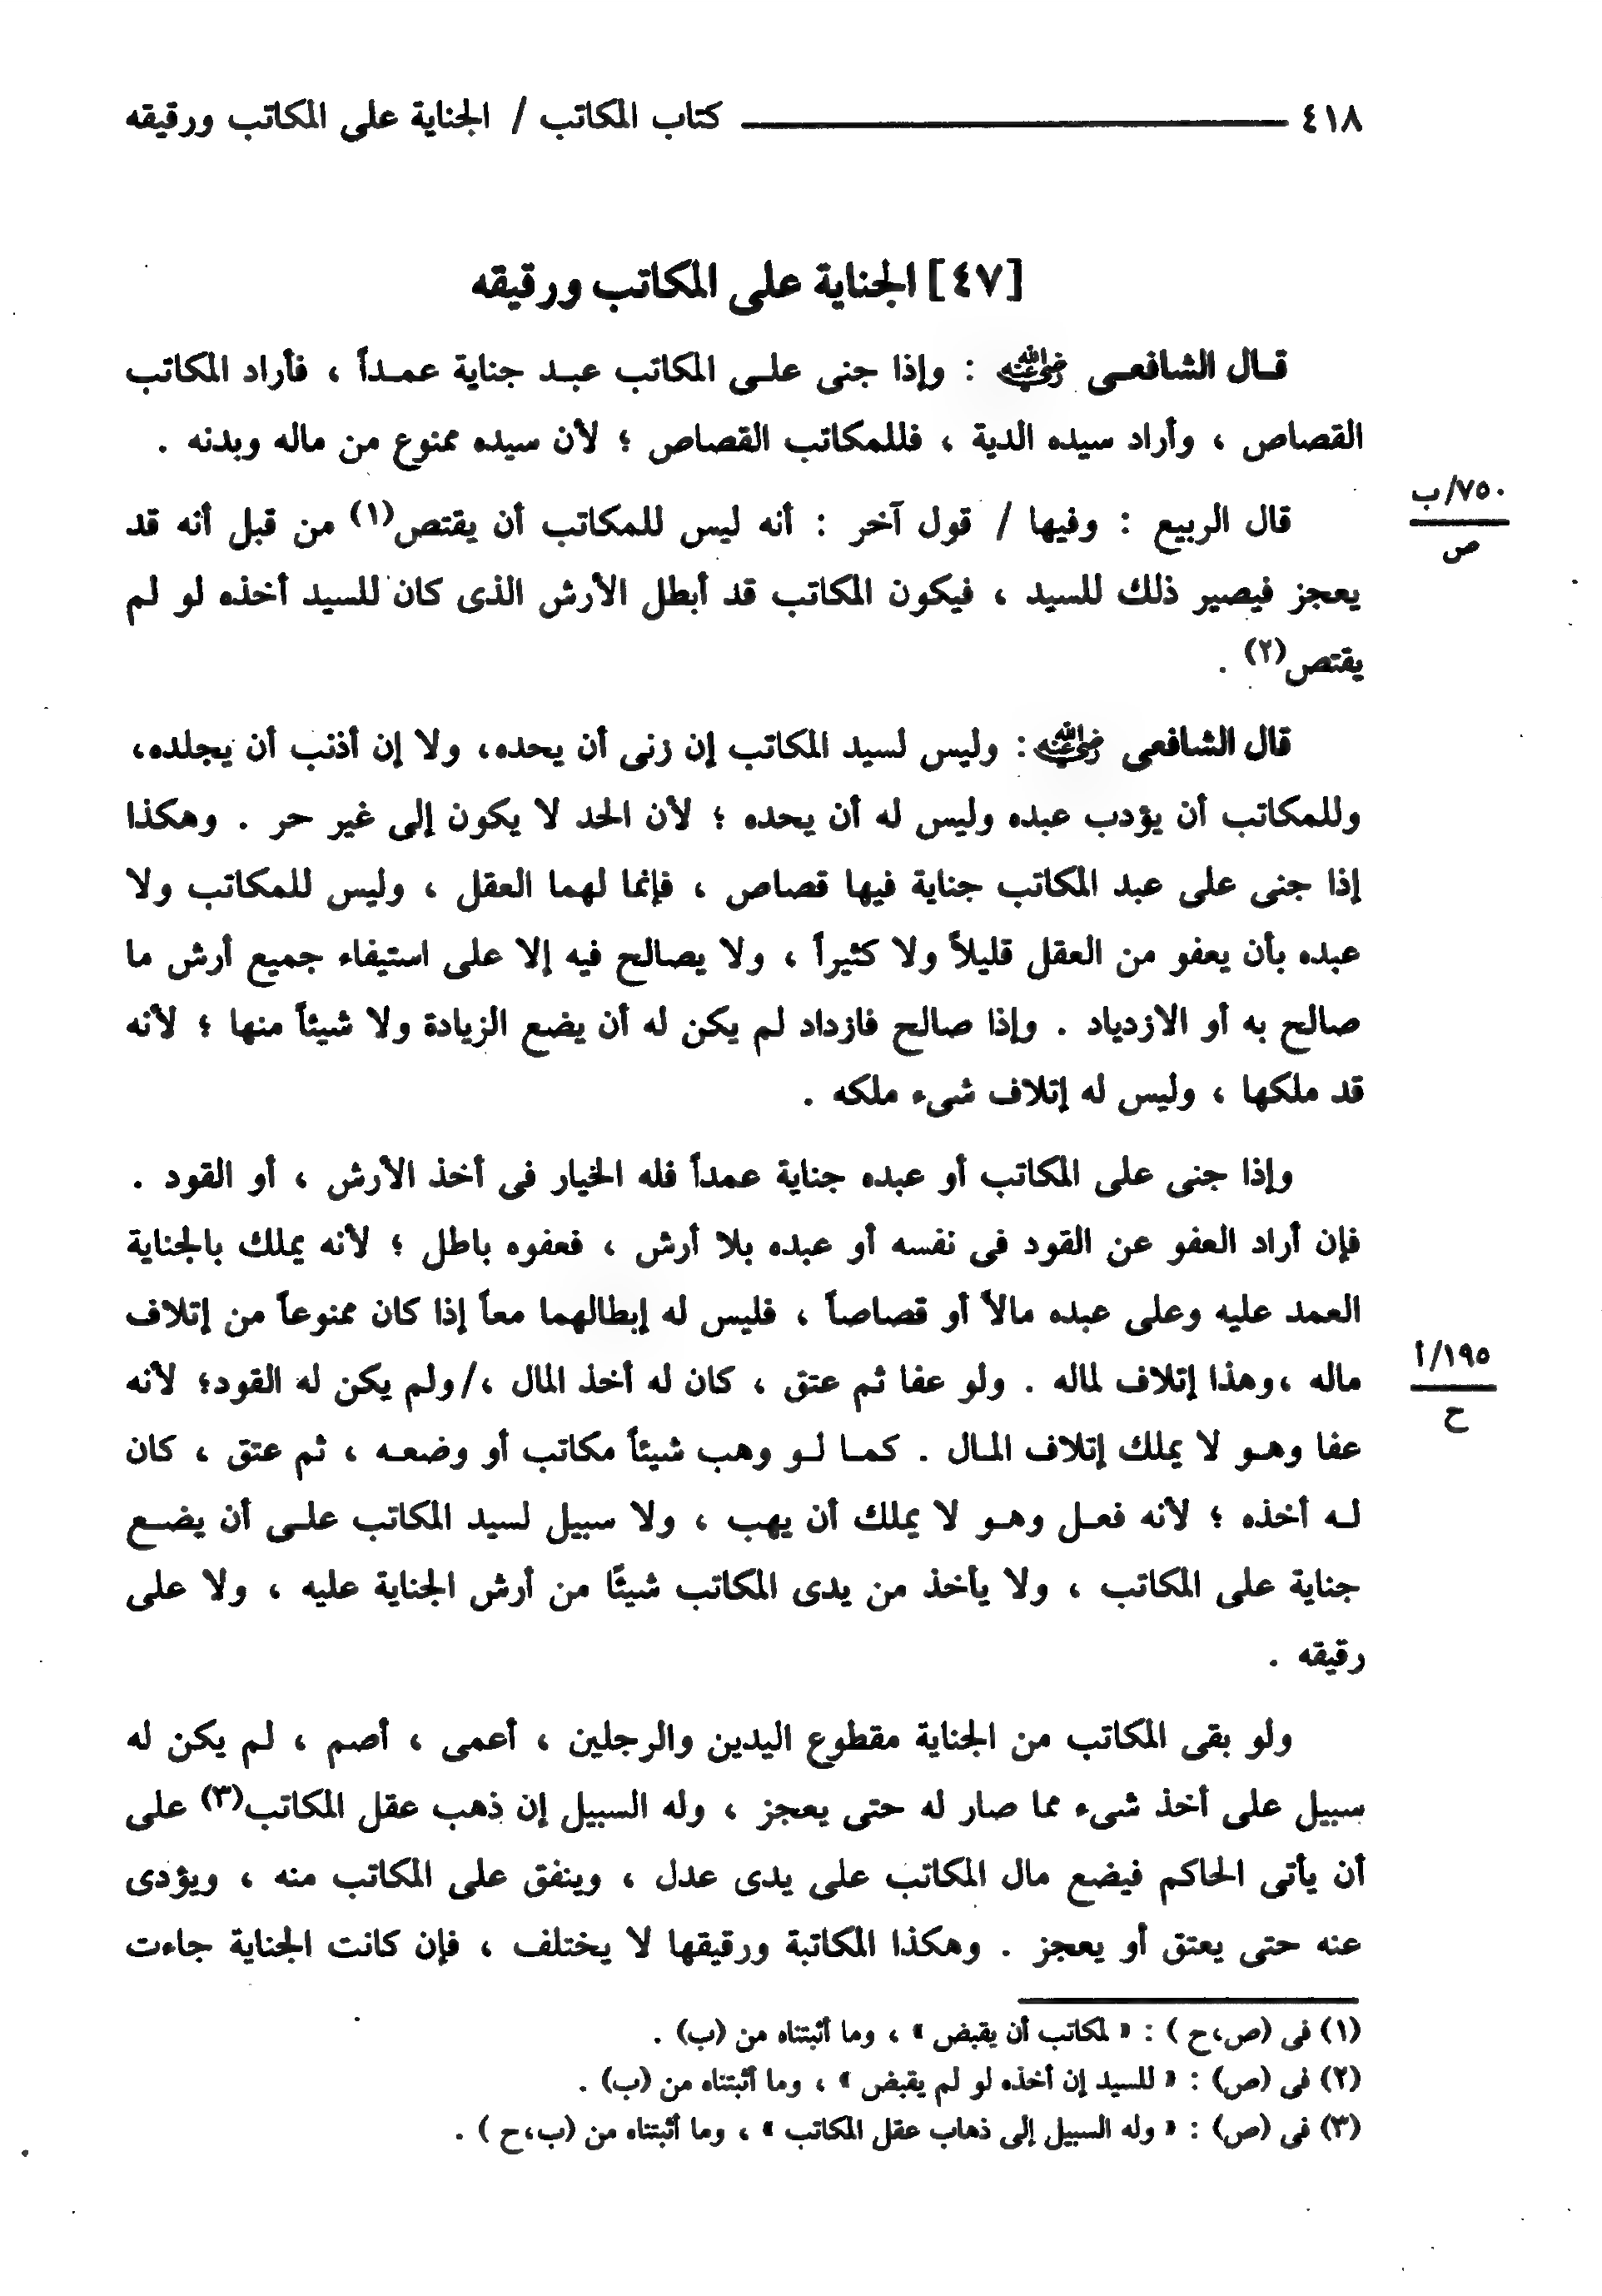 ٤١٨ كتاب المكاتب / الجناية على المكاتب ورقيقه
[٤٧] الجناية على المكاتب ورقيقه
قال الشافعى رضي الله عنه : وإذا جنى على المكاتب عبد جناية عمداً ، فأراد المكاتب
القصاص ، وأراد سيده الدية ، فللمكاتب القصاص ؛ لأن سيده ممنوع من ماله وبدنه .
٧٥٠/ب
ص
قال الربيع : وفيها / قول آخر : أنه ليس للمكاتب أن يقتص(١) من قبل أنه قد
يعجز فيصير ذلك للسيد ، فيكون المكاتب قد أبطل الأرش الذى كان للسيد أخذه لو لم
يقتص(٢) .
قال الشافعى رضي الله عنه: وليس لسيد المكاتب إن زنى أن يحده، ولا إن أذنب أن يجلده،
وللمكاتب أن يؤدب عبده وليس له أن يحده ؛ لأن الحد لا يكون إلى غير حر . وهكذا
إذا جنى على عبد المكاتب جناية فيها قصاص ، فإنما لهما العقل ، وليس للمكاتب ولا
عبده بأن يعفو من العقل قليلاً ولا كثيراً ، ولا يصالح فيه إلا على استيفاء جميع أرش ما
صالح به أو الازدياد . وإذا صالح فازداد لم يكن له أن يضع الزيادة ولا شيئاً منها ؛ لأنه
قد ملكها ، وليس له إتلاف شىء ملكه .
وإذا جنى على المكاتب أو عبده جناية عمداً فله الخيار فى أخذ الأرش ، أو القود .
فإن أراد العفو عن القود فى نفسه أو عبده بلا أرش ، فعفوه باطل ؛ لأنه يملك بالجناية
العمد عليه وعلى عبده مالاً أو قصاصاً ، فليس له إبطالهما معاً إذا كان ممنوعاً من إتلاف
١٩٥/أ
ح
ماله ،وهذا إتلاف لماله . ولو عفا ثم عتق ، كان له أخذ المال ،/ولم يكن له القود؛ لأنه
عفا وهو لا يملك إتلاف المال . كما لو وهب شيئاً مكاتب أو وضعه ، ثم عتق ، كان
له أخذه ؛ لأنه فعل وهو لا يملك أن يهب ، ولا سبيل لسيد المكاتب على أن يضع
جناية على المكاتب ، ولا يأخذ من يدى المكاتب شيئًا من أرش الجناية عليه ، ولا على
رقيقه .
ولو بقى المكاتب من الجناية مقطوع اليدين والرجلين ، أعمى ، أصم ، لم يكن له
سبيل على أخذ شىء مما صار له حتى يعجز ، وله السبيل إن ذهب عقل المكاتب(٣) على
أن يأتى الحاكم فيضع مال المكاتب على يدى عدل ، وينفق على المكاتب منه ، ويؤدى
عنه حتى يعتق أو يعجز . وهكذا المكاتبة ورقيقها لا يختلف ، فإن كانت الجناية جاءت
(١) فى (ص،ح ) : « لمكاتب أن يقبض » ، وما أثبتناه من (ب) .
(٢) فى (ص) : « للسيد إن أخذه لو لم يقبض » ، وما أثبتناه من (ب) .
(٣) فى (ص) : « وله السبيل إلى ذهاب عقل المكاتب » ، وما أثبتناه من (ب،ح ) .